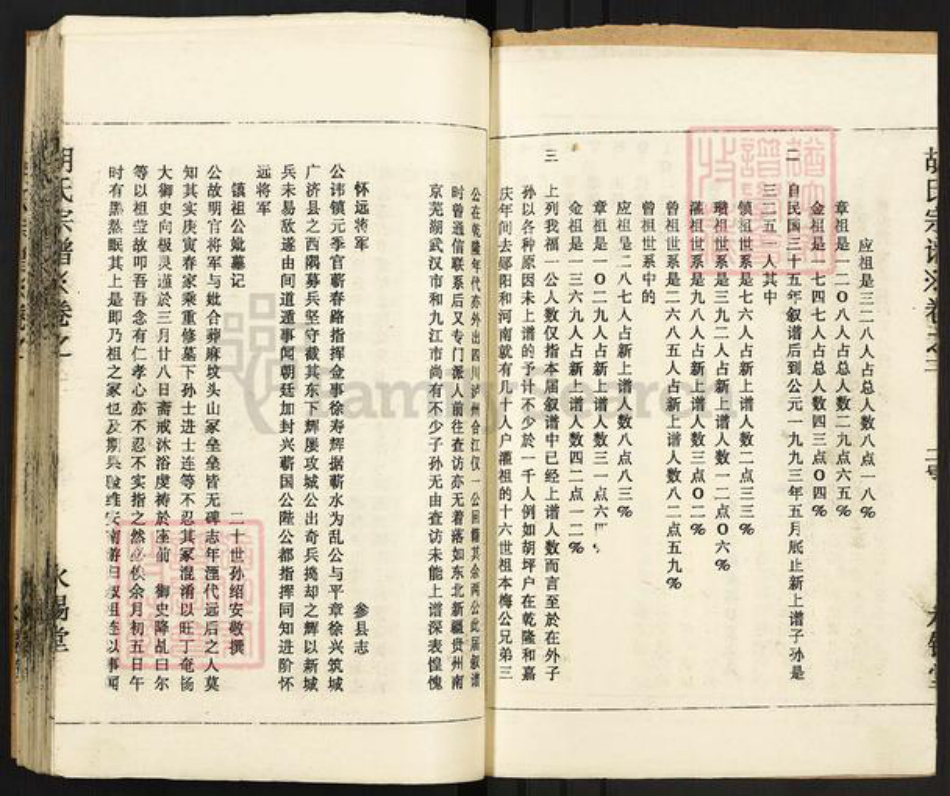 胡氏宗谱 卷之
应祖是三二八人占总人数八点一八%
章祖是一二〇八人占总人数二九点六五%
金祖是一七四七人占总人数四三点〇四%
二 自民国三十五年叙谱后到公元一九九三年五月底止新上谱子孙是
三二五一人其中
镇祖世系是七六人占新上谱人数二点三三%
瓒祖世系是三九二人占新上谱人数一二点〇六%
灌祖世系是九八人占新上谱人数三点〇二%
曾祖世系是二六八五人占新上谱人数八二点五九%
曾祖世系中的
应祖是二八七人占新上谱人数八点八三%
章祖是一〇二九人占新上谱人数三一点六
金祖是一三六九人占新上谱人数四二点一二%
三 上列我福一公人数仅指本届叙谱中已经上谱人数而言至於在外子
孙以各种原因未上谱的予计不少於一千人例如胡坪户在乾隆和嘉
庆年间去郧阳和河南就有几十人户灌祖的十六世祖本梅公兄弟三
公在乾隆年代亦外出四川泸州合江仅一公回籍其余两公此届叙谱
时曾通信联系后又专门派人前往查访亦无着落如东北新疆贵州南
京芜湖武汉市和九江市尚有不少子孙无由查访未能上谱深表惶愧
怀远将军 参县志
公讳镇元季官蕲春路指挥佥事徐寿辉据蕲水为乱公与平章徐兴筑城
广济县之西隅募兵坚守截其东下辉屡攻城公出奇兵捣却之辉以新城
兵未易敌遂由间道遁事闻朝廷加封兴蕲国公陞公都指挥同知进阶怀
远将军
镇祖公妣墓记 二十世孙绍安敬撰
公故明官将军与妣合葬麻坟头山冢垒垒皆无碑志年湮代远后之人莫
知其实庚寅春家乘重修墓下孙士进士连等不忍其冢混淆以旺丁奄扬
大御史向极灵谨於三月廿八日斋戒沐浴虔祷於座前 御史降乩曰尔
等以祖茔故叩吾吾念有仁孝心亦不忍不实指之然必俟余月初五日午
时有黑漦眠其上是即乃祖之冢也及期
胡氏宗谱 卷之